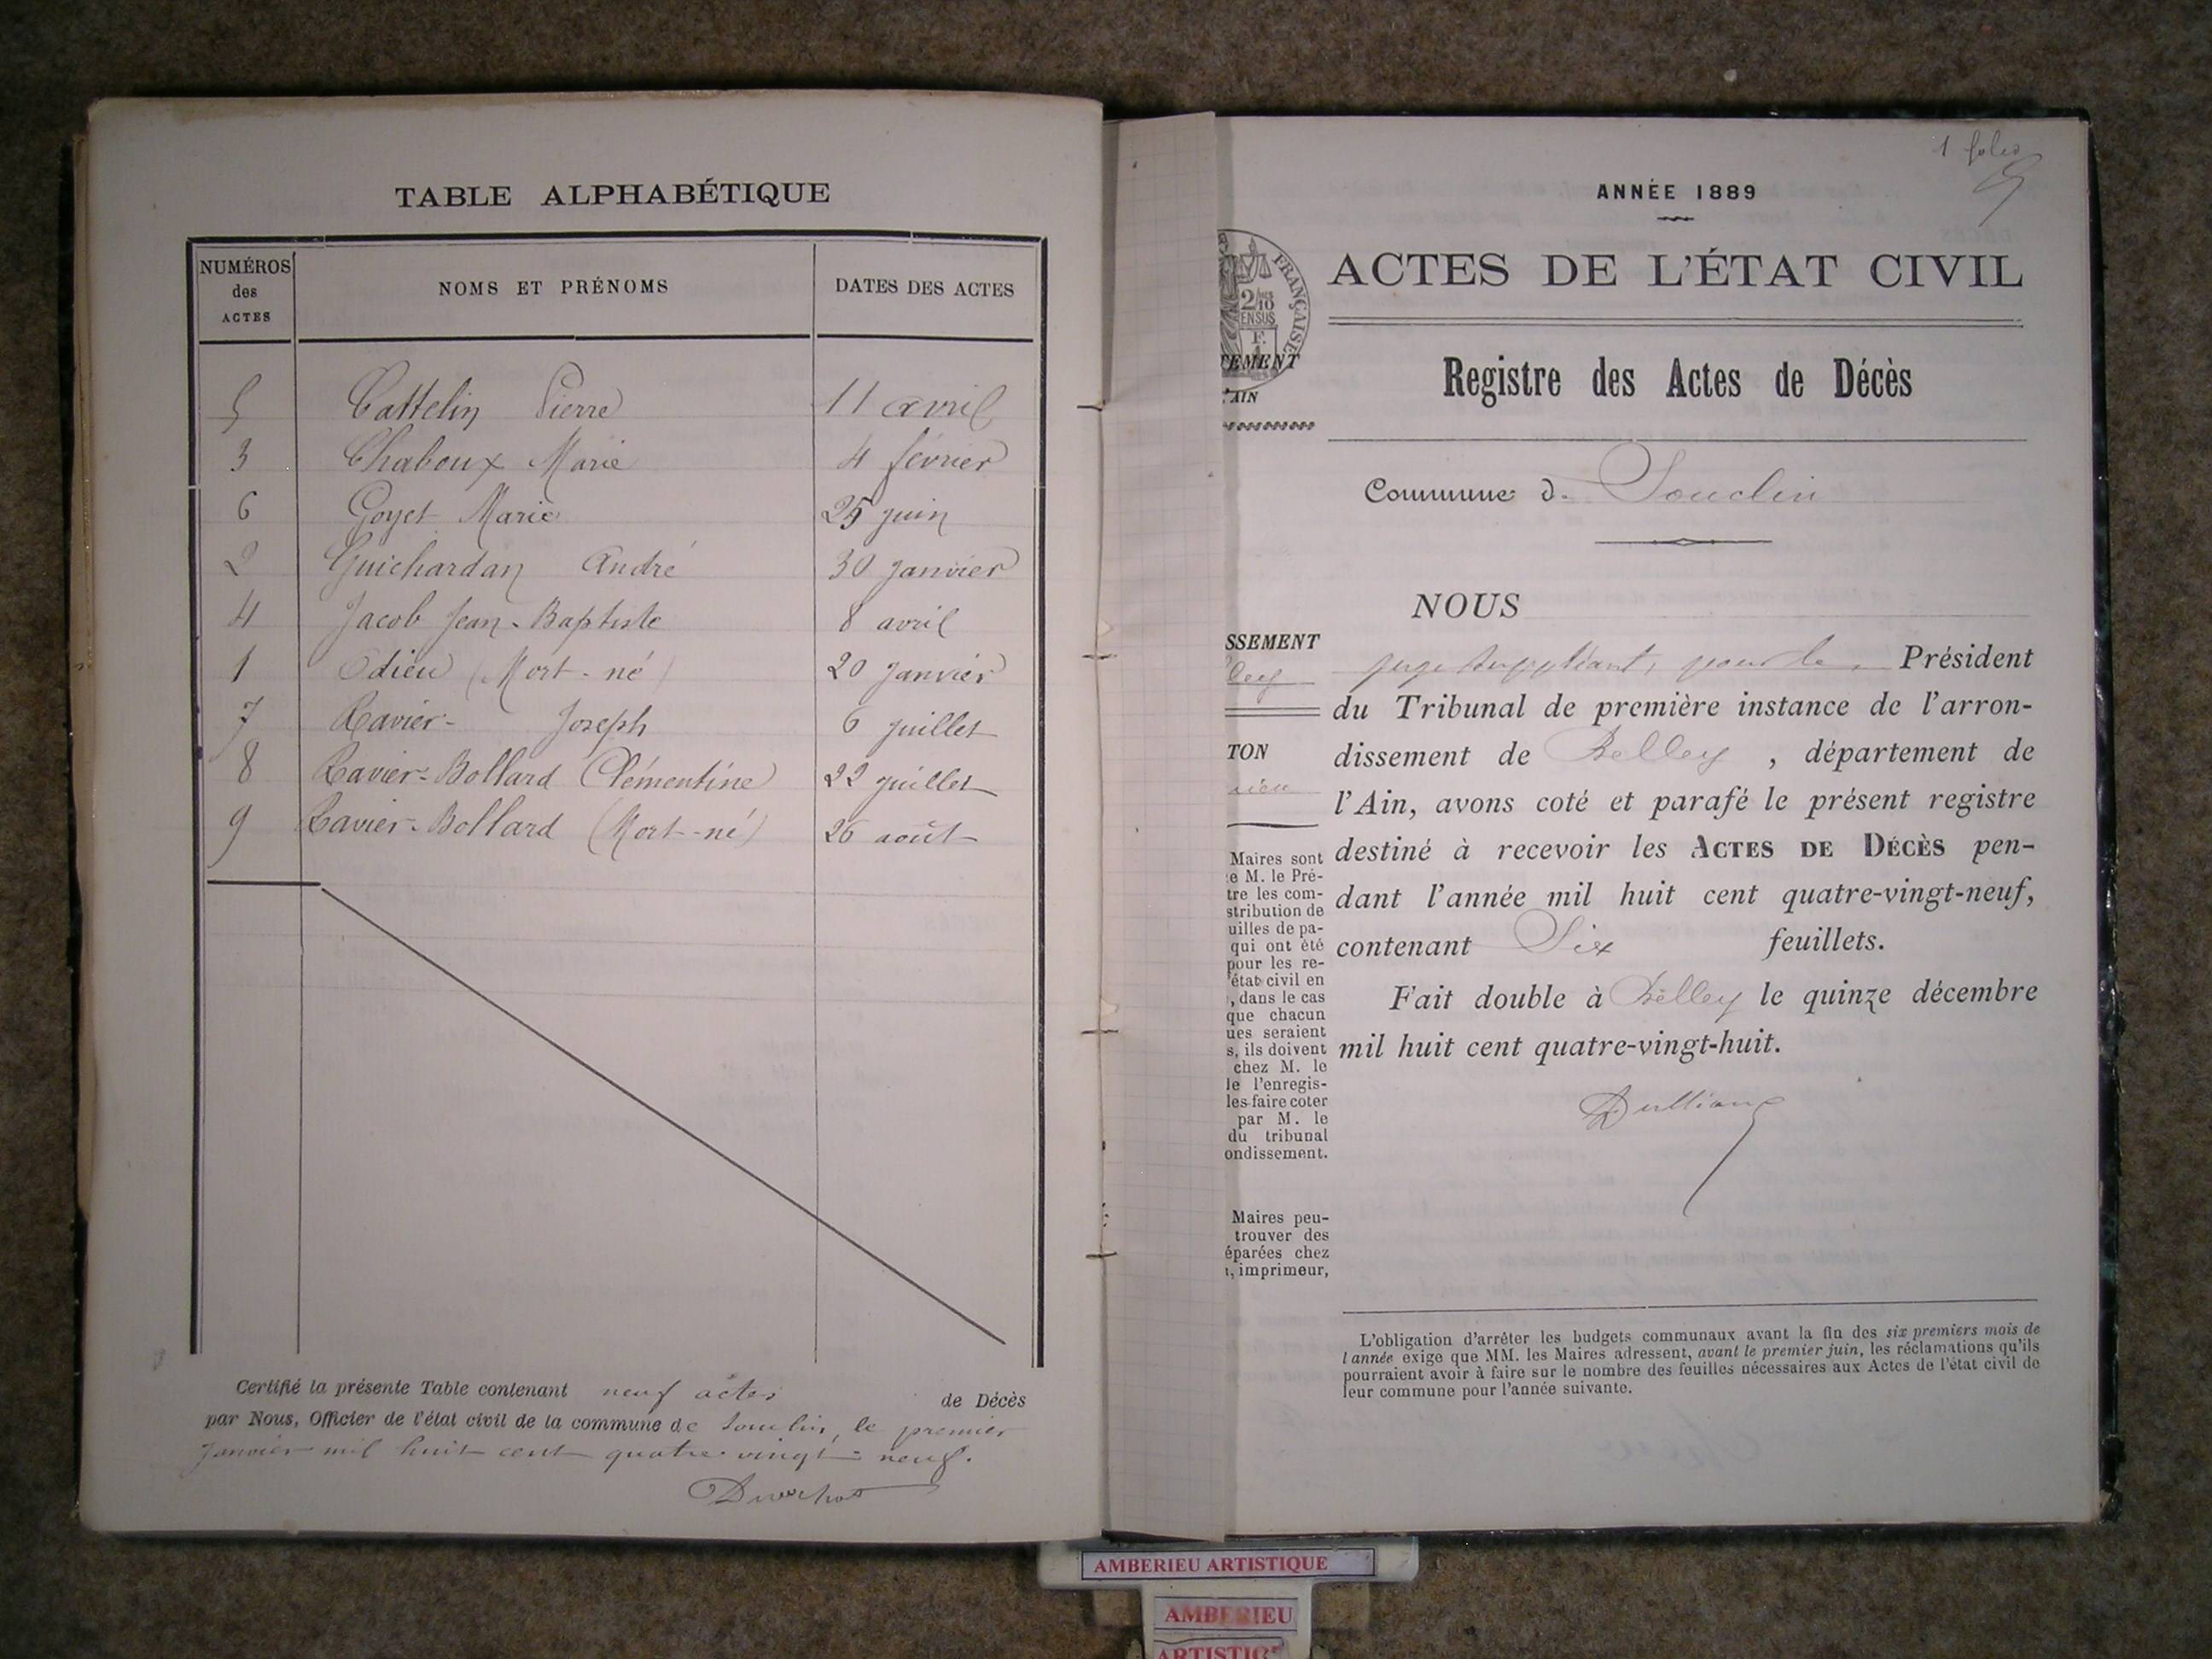 TABLE ALPHABÉTIQUE
NUMÉROS
des
ACTES
NOMS ET PRÉNOMS
DATES DES ACTES
5 Cattelin Pierre 11 avril
3 Chaboux Marie 4 février
6 Goyet Marie 25 juin
2 Guichardan André 30 janvier
4 Jacob Jean-Baptiste 8 avril
1 Odieu (Mort-né) 20 janvier
7 Ravier- Joseph 6 juillet
8 Ravier-Bollard Clémentine 22 juillet
9 Ravier-Bollard (Mort-né) 26 août
Certifié la présente Table contenant neuf actes de Décès
par Nous, Officier de l'état civil de la commune de Souclin, le premier
janvier mil huit cent quatre-vingt-neuf.
1 folio
ANNÉE 1889
FRANÇAISE
2/10
EN SUS
F.
ACTES DE L'ÉTAT CIVIL
TEMENT
AIN
Registre des Actes de Décès
Commune d. Souclin
NOUS
SSEMENT
lley
juge suppléant, pour le, Président
du Tribunal de première instance de l'arron-
TON
dissement de Belley, département de
l'Ain, avons coté et parafé le présent registre
destiné à recevoir les ACTES DE DÉCÈS pen-
dant l'année mil huit cent quatre-vingt-neuf,
contenant Six feuillets.
Fait double à Belley le quinze décembre
mil huit cent quatre-vingt-huit.
Maires sont
e M. le Pré-
tre les com-
stribution de
uilles de pa-
qui ont été
pour les re-
'état civil en
, dans le cas
que chacun
ues seraient
s, ils doivent
chez M. le
le l'enregis-
les faire coter
par M. le
du tribunal
ondissement.
Maires peu-
trouver des
éparées chez
, imprimeur,
L'obligation d'arrêter les budgets communaux avant la fin des six premiers mois de
l'année exige que MM. les Maires adressent, avant le premier juin, les réclamations qu'ils
pourraient avoir à faire sur le nombre des feuilles nécessaires aux Actes de l'état civil de
leur commune pour l'année suivante.
AMBERIEU ARTISTIQUE
AMBERIEU
ARTISTIQ